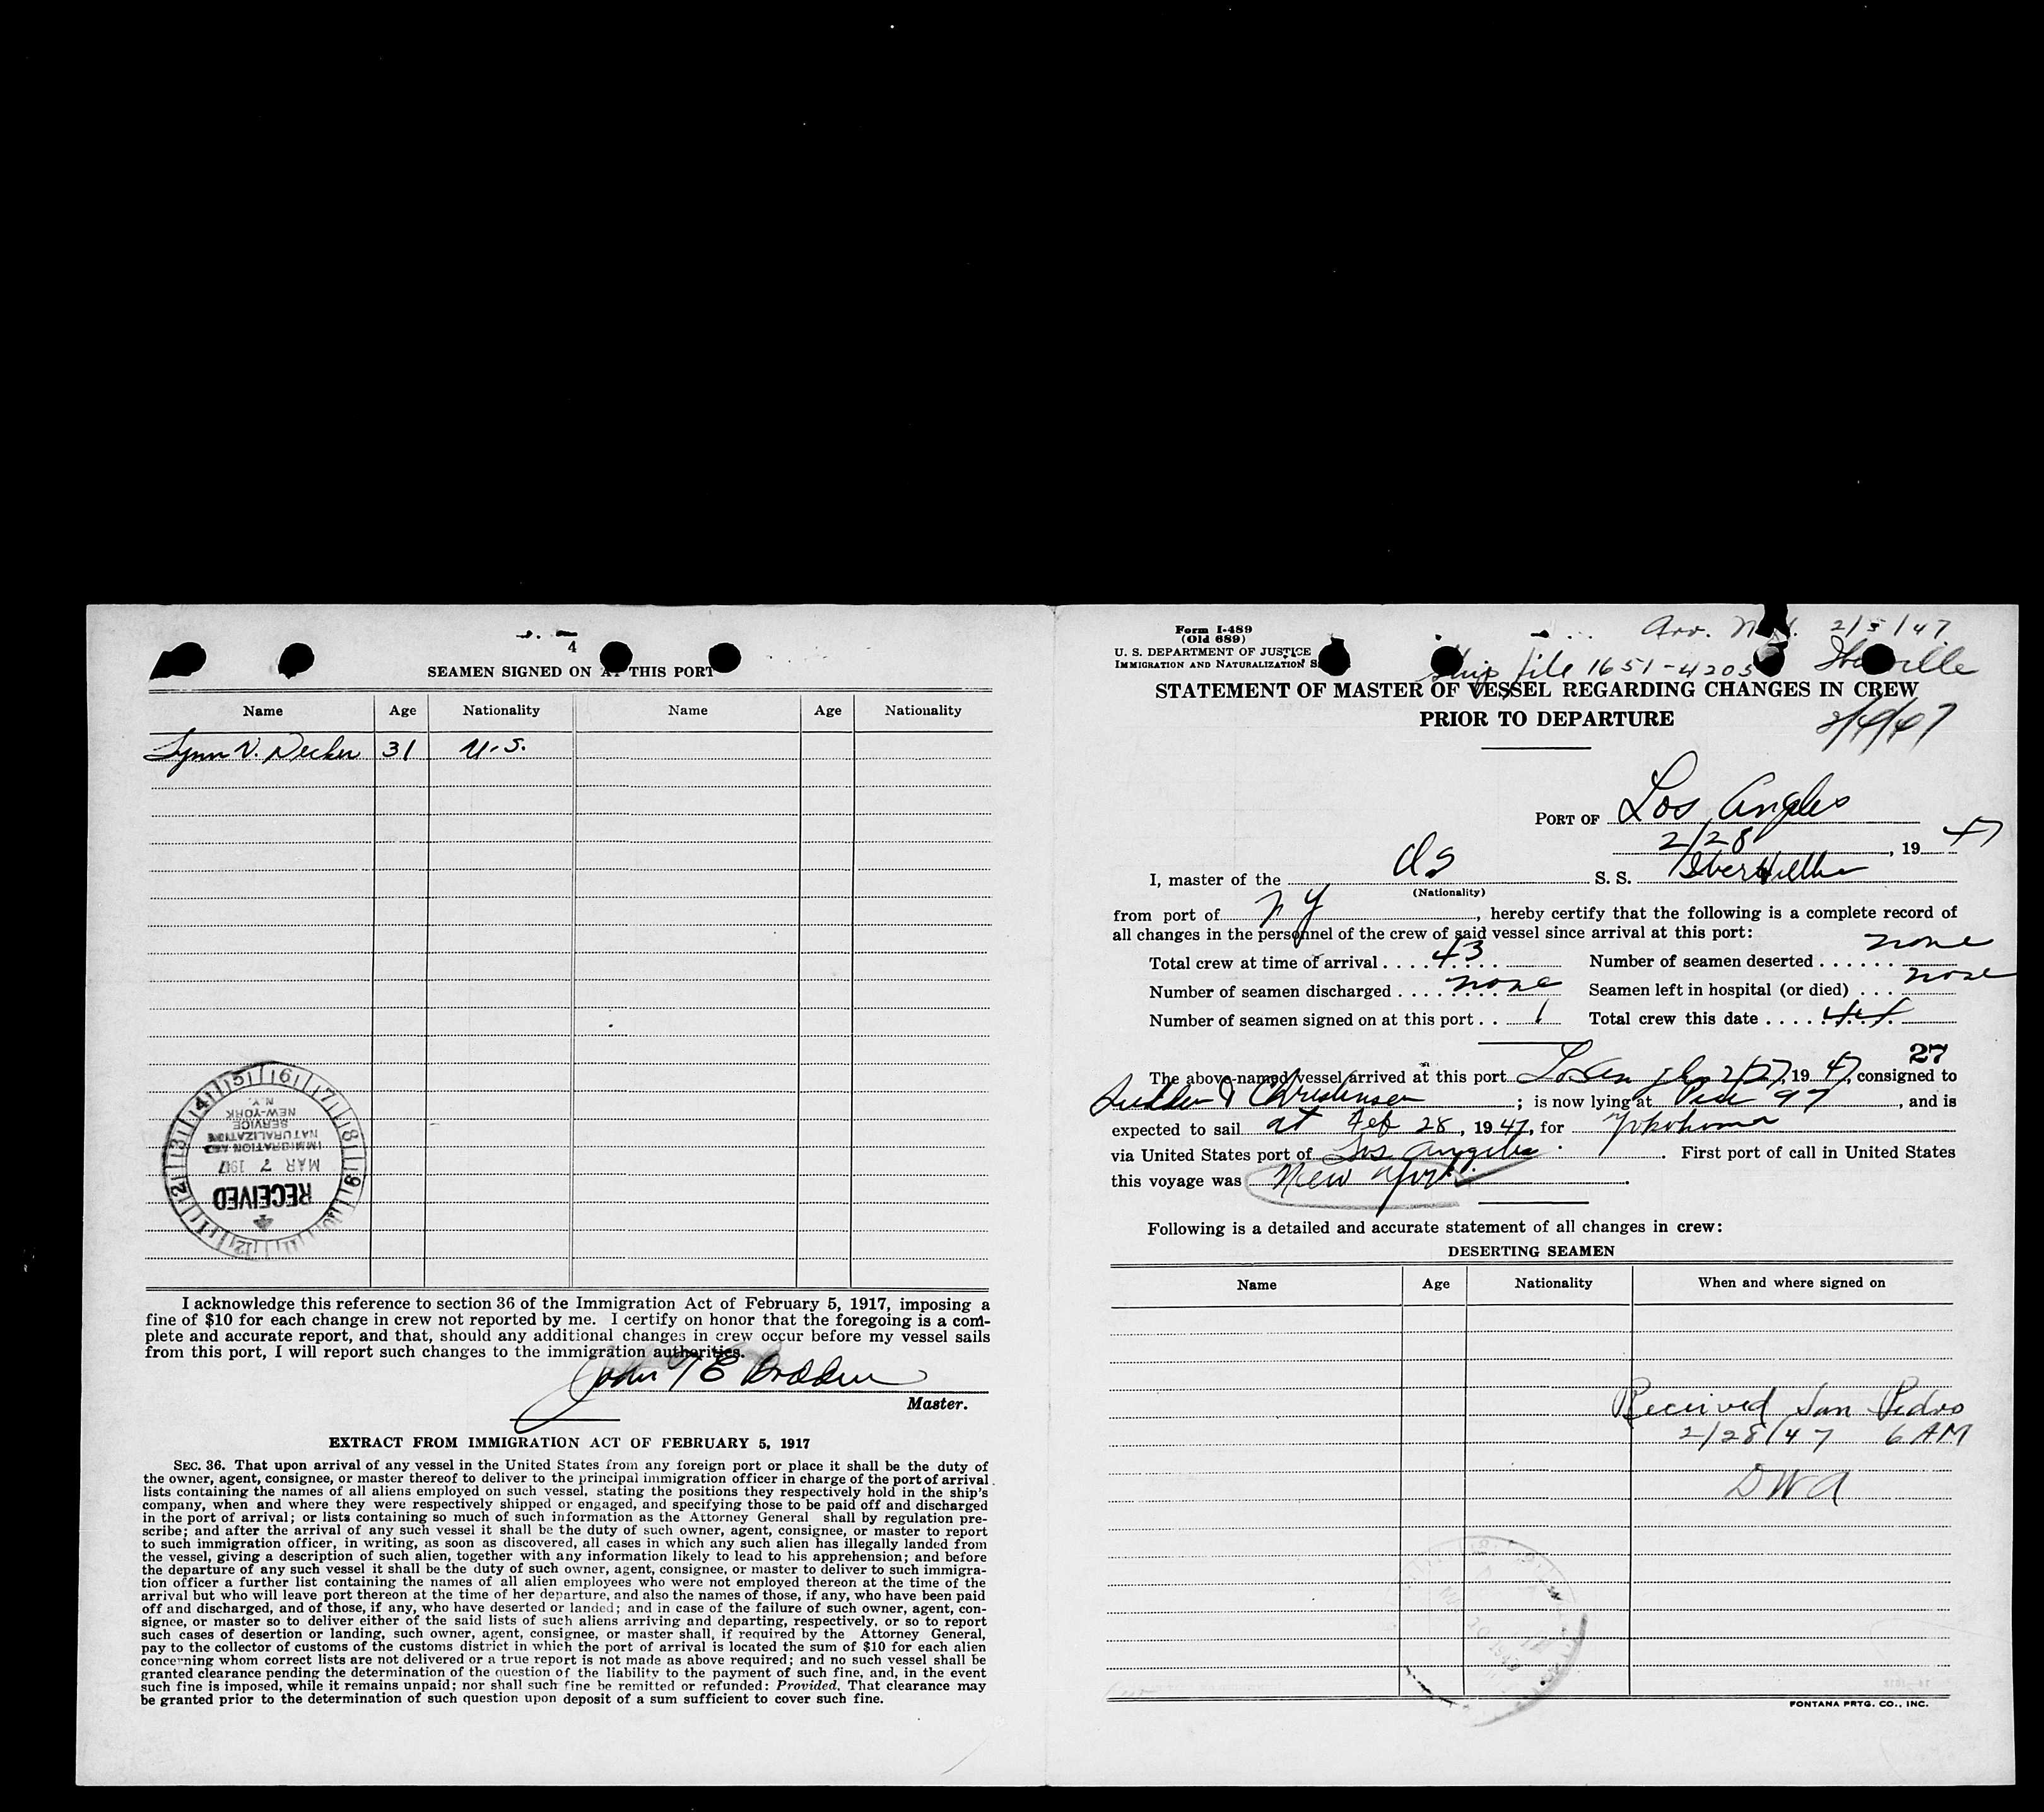 4
SEAMEN SIGNED ON AT THIS PORT
Name Age Nationality Name Age Nationality
Lynn V. Decker 31 U.S.
RECEIVED
MAR 7 1947
IMMIGRATION AND
NATURALIZATION
SERVICE
NEW-YORK
N.Y.
I acknowledge this reference to section 36 of the Immigration Act of February 5, 1917, imposing a
fine of $10 for each change in crew not reported by me. I certify on honor that the foregoing is a com-
plete and accurate report, and that, should any additional changes in crew occur before my vessel sails
from this port, I will report such changes to the immigration authorities.
John
Master.
EXTRACT FROM IMMIGRATION ACT OF FEBRUARY 5, 1917
SEC. 36. That upon arrival of any vessel in the United States from any foreign port or place it shall be the duty of
the owner, agent, consignee, or master thereof to deliver to the principal immigration officer in charge of the port of arrival
lists containing the names of all aliens employed on such vessel, stating the positions they respectively hold in the ship's
company, when and where they were respectively shipped or engaged, and specifying those to be paid off and discharged
in the port of arrival; or lists containing so much of such information as the Attorney General shall by regulation pre-
scribe; and after the arrival of any such vessel it shall be the duty of such owner, agent, consignee, or master to report
to such immigration officer, in writing, as soon as discovered, all cases in which any such alien has illegally landed from
the vessel, giving a description of such alien, together with any information likely to lead to his apprehension; and before
the departure of any such vessel it shall be the duty of such owner, agent, consignee, or master to deliver to such immigra-
tion officer a further list containing the names of all alien employees who were not employed thereon at the time of the
arrival but who will leave port thereon at the time of her departure, and also the names of those, if any, who have been paid
off and discharged, and of those, if any, who have deserted or landed; and in case of the failure of such owner, agent, con-
signee, or master so to deliver either of the said lists of such aliens arriving and departing, respectively, or so to report
such cases of desertion or landing, such owner, agent, consignee, or master shall, if required by the Attorney General,
pay to the collector of customs of the customs district in which the port of arrival is located the sum of $10 for each alien
concerning whom correct lists are not delivered or a true report is not made as above required; and no such vessel shall be
granted clearance pending the determination of the question of the liability to the payment of such fine, and, in the event
such fine is imposed, while it remains unpaid; nor shall such fine be remitted or refunded: Provided, That clearance may
be granted prior to the determination of such question upon deposit of a sum sufficient to cover such fine.
Form I-489
(Old 689)
U. S. DEPARTMENT OF JUSTICE
IMMIGRATION AND NATURALIZATION
Arr. N.Y. 2/5/47
Ship file 1651-4205 Iberville
STATEMENT OF MASTER OF VESSEL REGARDING CHANGES IN CREW
PRIOR TO DEPARTURE
PORT OF Los Angles
2/28, 1947
I, master of the US S. S.
(Nationality)
from port of N Y, hereby certify that the following is a complete record of
all changes in the personnel of the crew of said vessel since arrival at this port:
Total crew at time of arrival .... 43 Number of seamen deserted ...... none
Number of seamen discharged ........ none Seamen left in hospital (or died) ... none
Number of seamen signed on at this port .. 1 Total crew this date ........ 44
27
The above-named vessel arrived at this port 2/27, 1947, consigned to
Christensen; is now lying at 97, and is
expected to sail at Feb 28, 1947, for Yokohoma
via United States port of Los Angeles. First port of call in United States
this voyage was New York.
Following is a detailed and accurate statement of all changes in crew:
DESERTING SEAMEN
Name Age Nationality When and where signed on
Received San Pedro
2/28/47 6 AM
DWA
FONTANA PRTG. CO., INC.